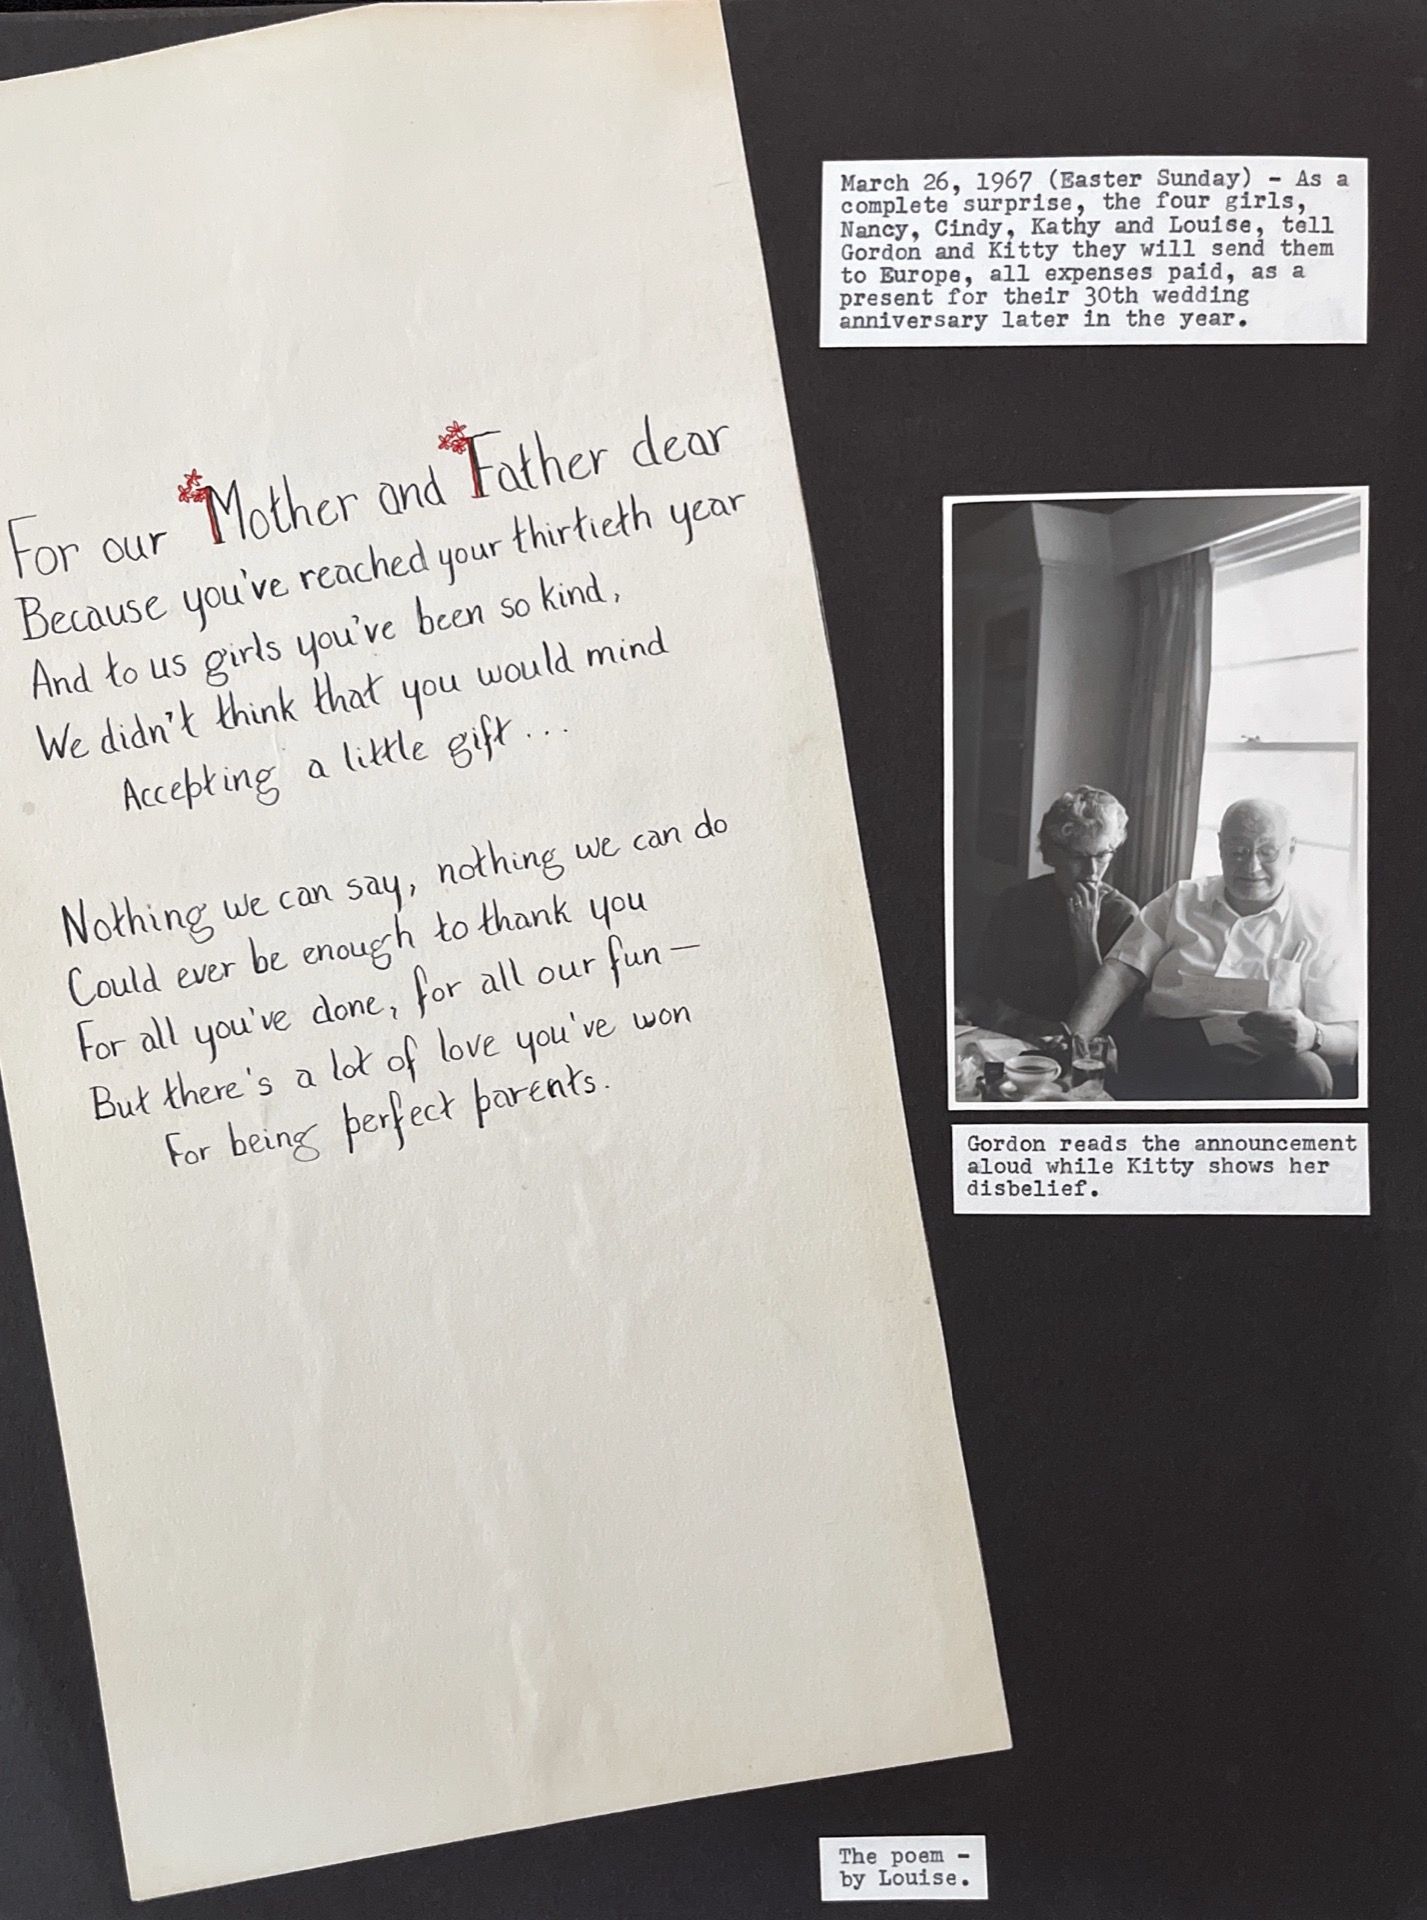 For our Mother and Father dear
Because you've reached your thirtieth year
And to us girls you've been so kind,
We didn't think that you would mind
Accepting a little gift...
Nothing we can say, nothing we can do
Could ever be enough to thank you
For all you've done, for all our fun —
But there's a lot of love you've won
For being perfect parents.
March 26, 1967 (Easter Sunday) - As a
complete surprise, the four girls,
Nancy, Cindy, Kathy and Louise, tell
Gordon and Kitty they will send them
to Europe, all expenses paid, as a
present for their 30th wedding
anniversary later in the year.
Gordon reads the announcement
aloud while Kitty shows her
disbelief.
The poem -
by Louise.